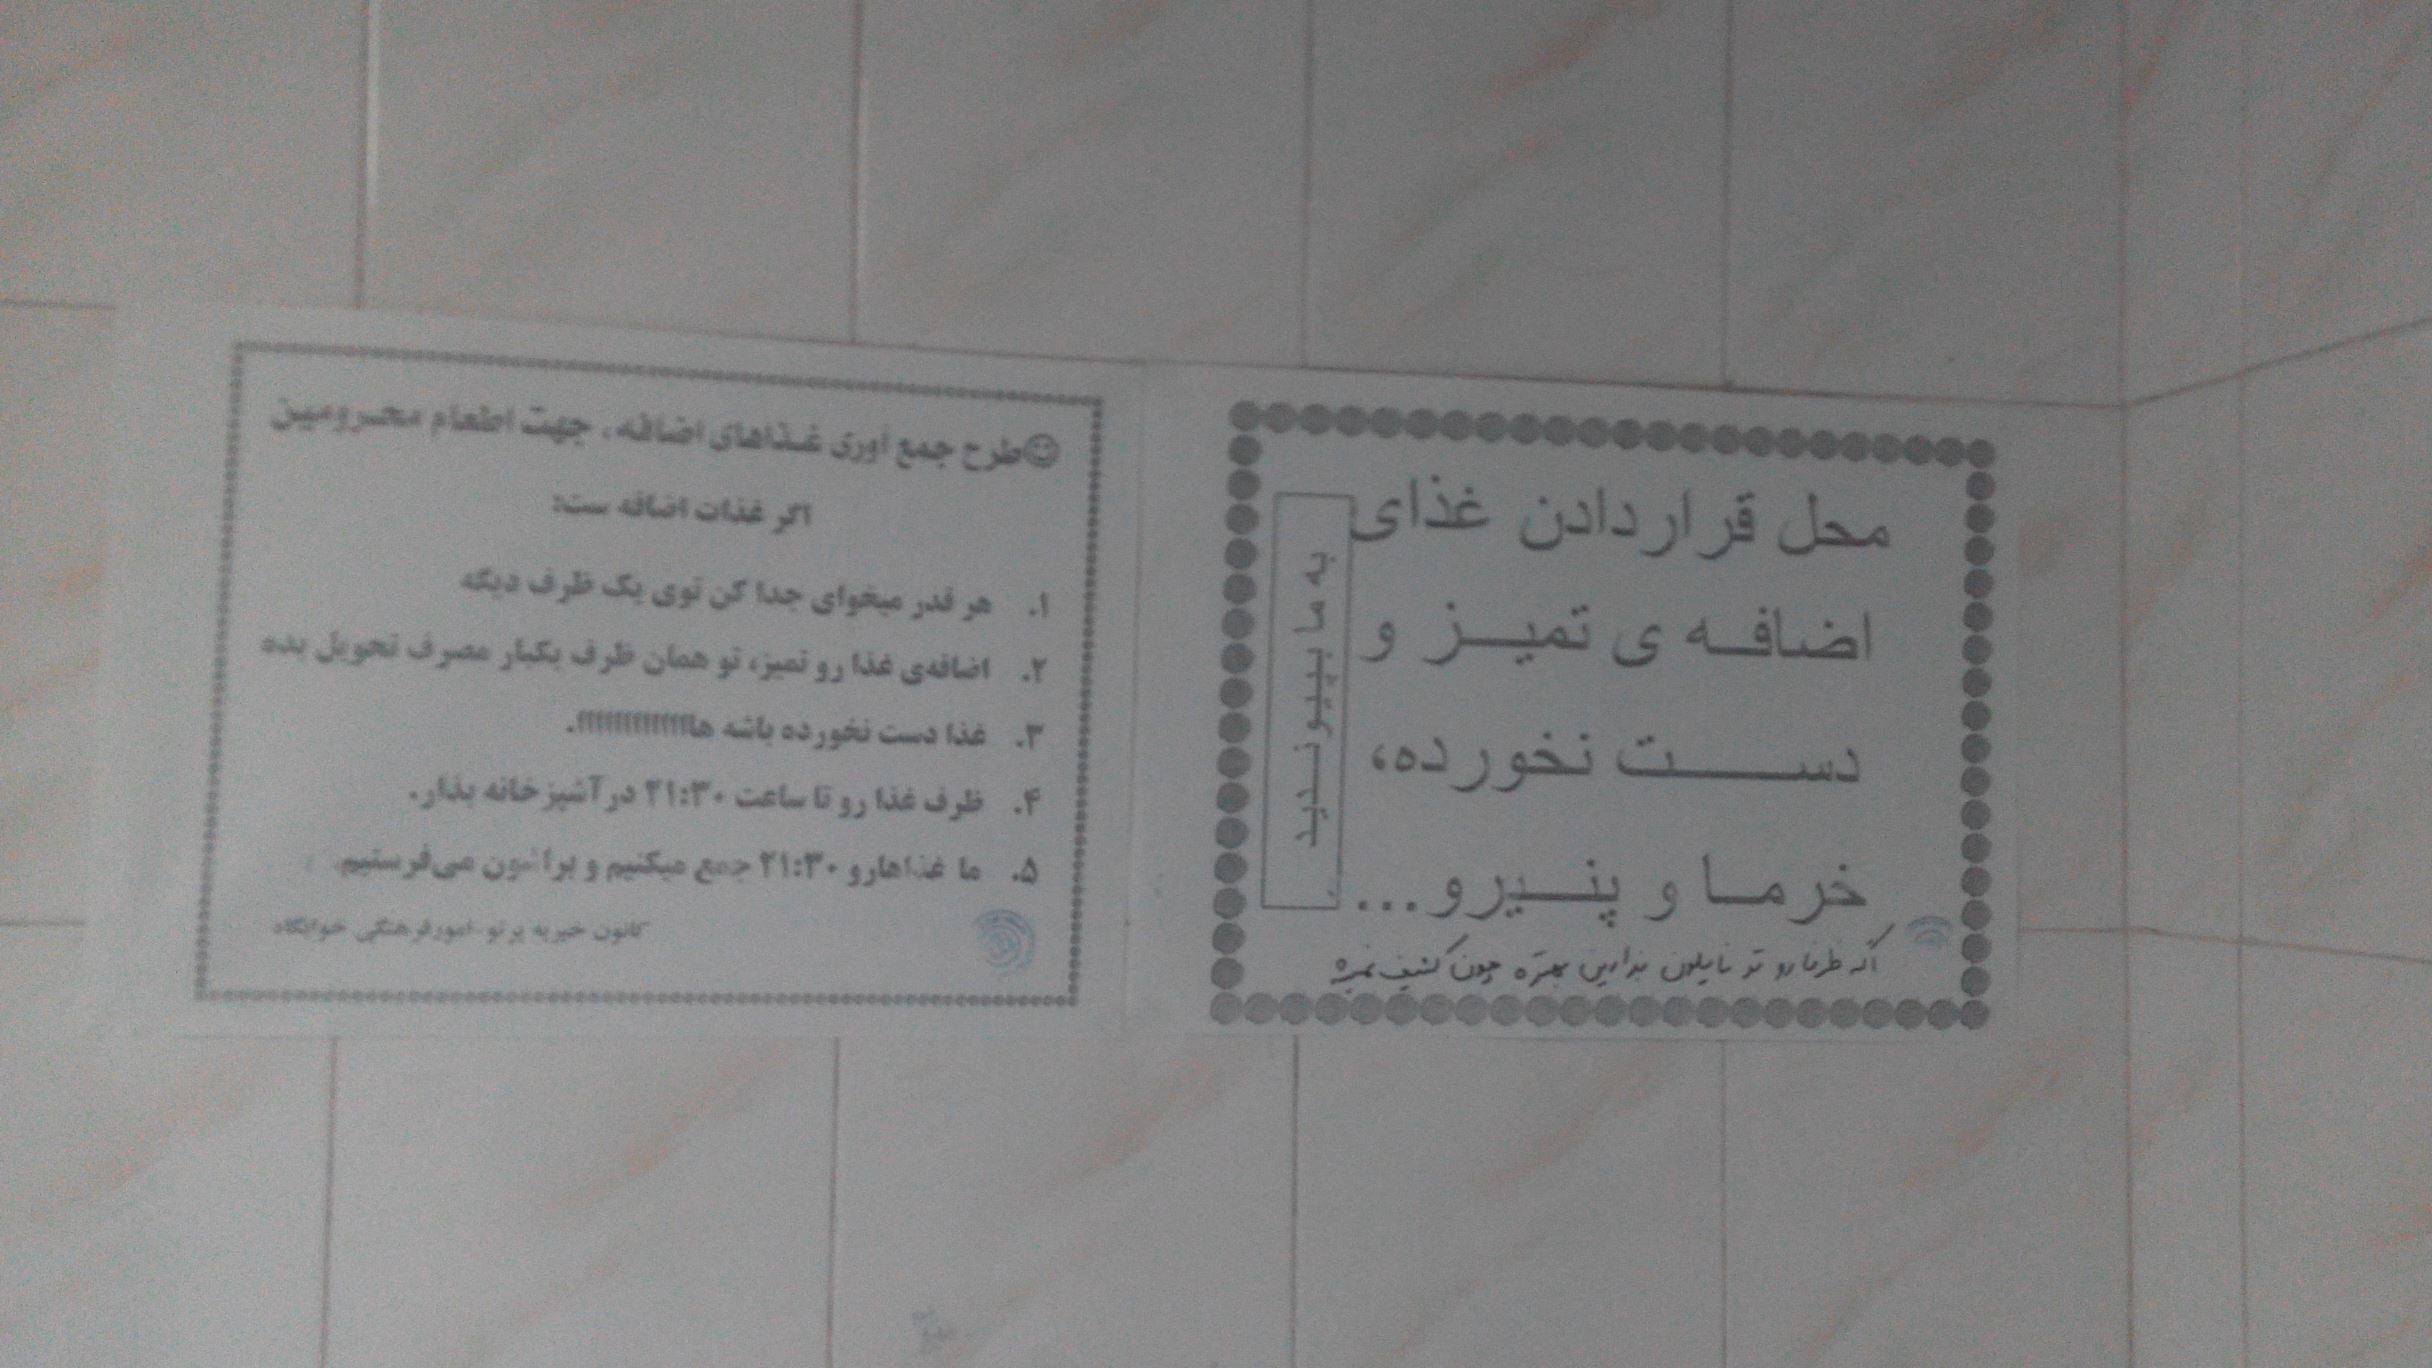 محل قراردادن غذای
اضافه ی تمیز و
دست نخورده،
خرما و پنیرو...
به ما بپیوندید
اگه ظرفارو تو نایلون بذارین بهتره چون کثیف نمیشه
☺طرح جمع آوری غذاهای اضافه، جهت اطعام محرومین
اگر غذات اضافه ست:
۱. هر قدر میخوای جدا کن توی یک ظرف دیگه
۲. اضافه‌ی غذا رو تمیز، تو همان ظرف یکبار مصرف تحویل بده
۳. غذا دست نخورده باشه هااااااااااااااا.
۴. ظرف غذا رو تا ساعت ۲۱:۳۰ درآشپزخانه بذار.
۵. ما غذاهارو ۲۱:۳۰ جمع میکنیم و براشون می‌فرستیم.
کانون خیریه پرتو-امورفرهنگی خوابگاه